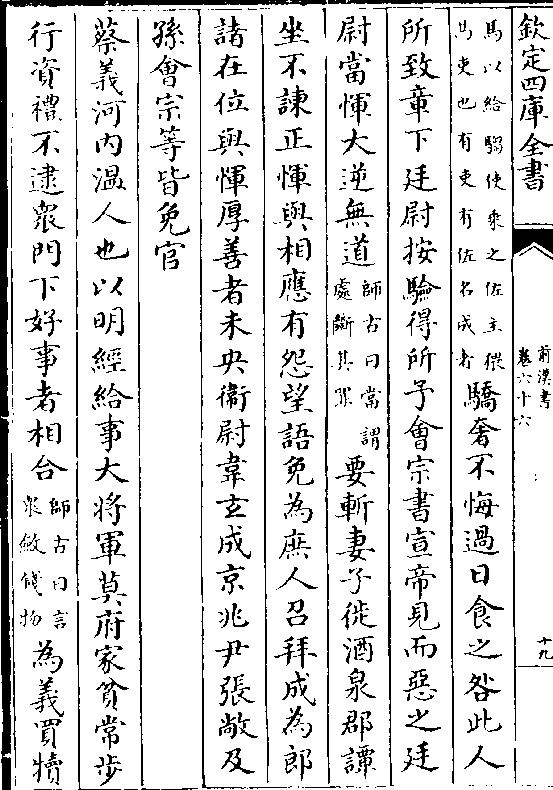 欽定四庫全書
前漢書
卷六十六
十九
馬以給騶使乘之佐主猥
馬吏也有吏有佐名成者
驕奢不悔過日食之咎此人
所致章下廷尉按驗得所予會宗書宣帝見而惡之廷
尉當惲大逆無道
師古曰當謂
處斷其罪
要斬妻子徙酒泉郡譚
坐不諫正惲與相應有怨望語免為庶人召拜成為郎
諸在位與惲厚善者未央衞尉韋玄成京兆尹張敞及
孫會宗等皆免官
蔡義河内溫人也以明經給事大將軍莫府家貧常步
行資禮不逮衆門下好事者相合
師古曰言
衆斂錢物
為義買犢